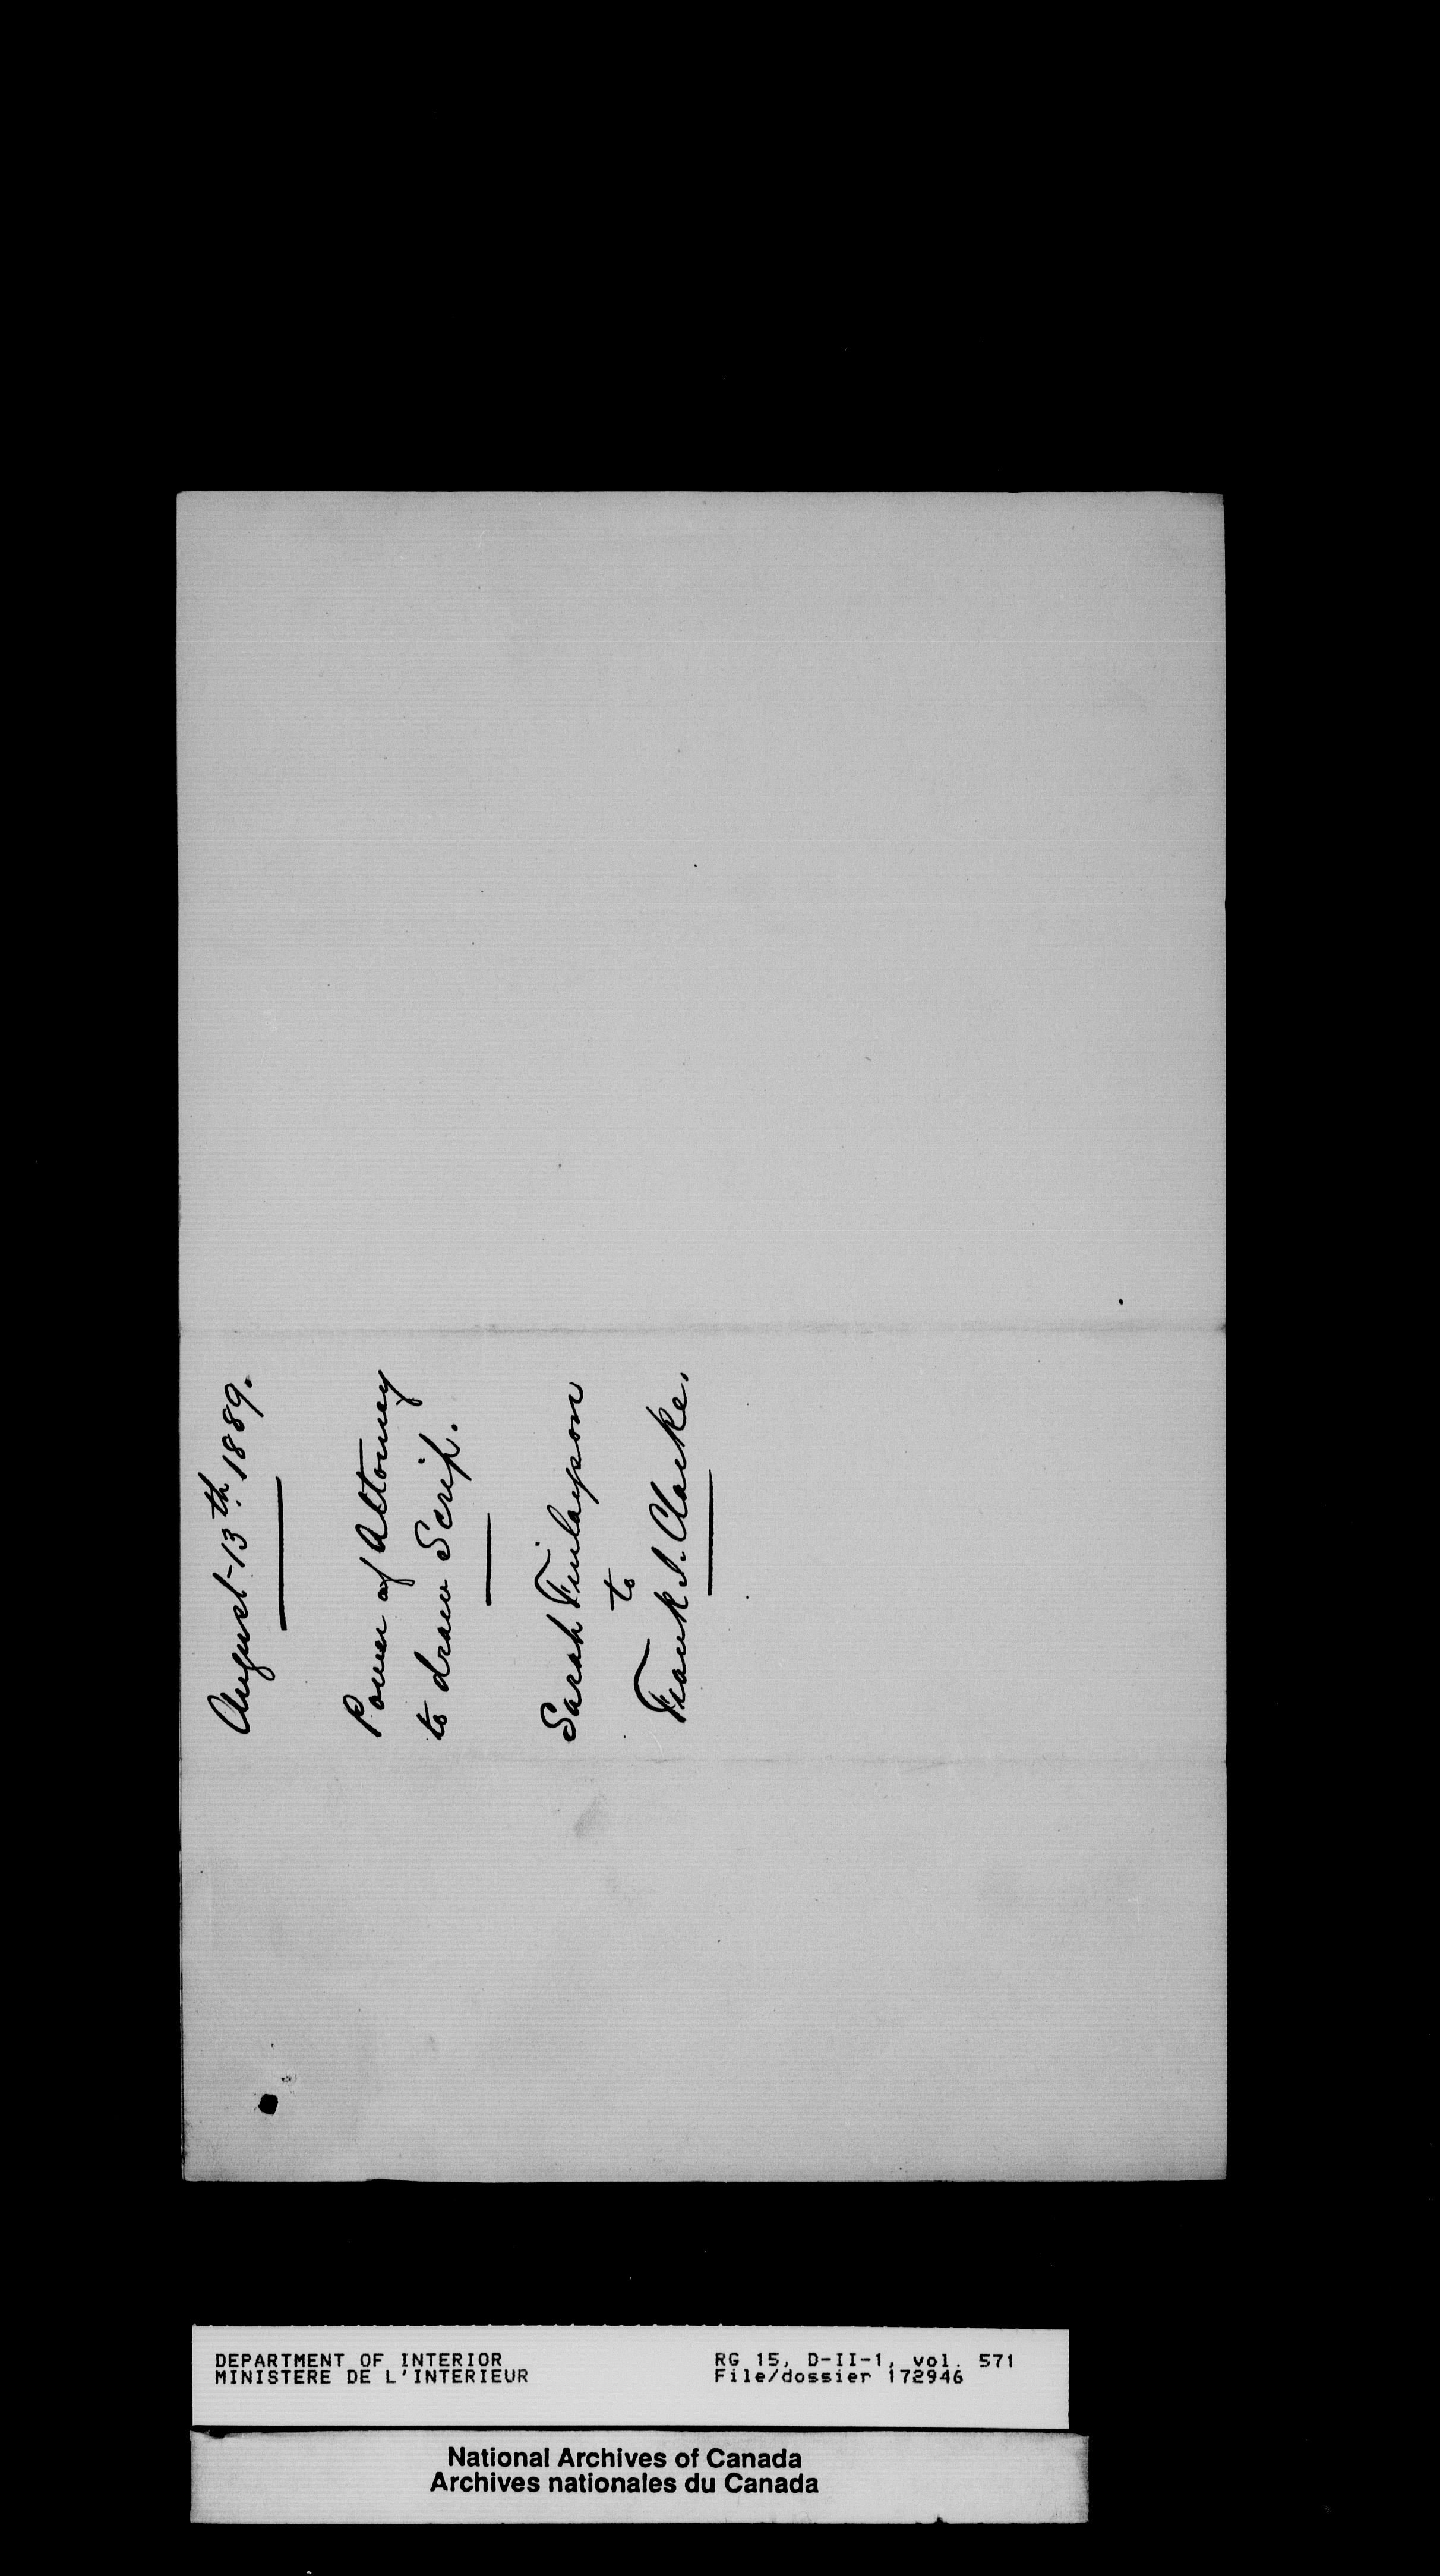 August 13th. 1889.
Power of Attorney
to draw Scrip.
Sarah Finlayson
to
Frank I. Clarke.
DEPARTMENT OF INTERIOR
MINISTERE DE L'INTERIEUR
RG 15, D-II-1, vol. 571
File/dossier 172946
National Archives of Canada
Archives nationales du Canada